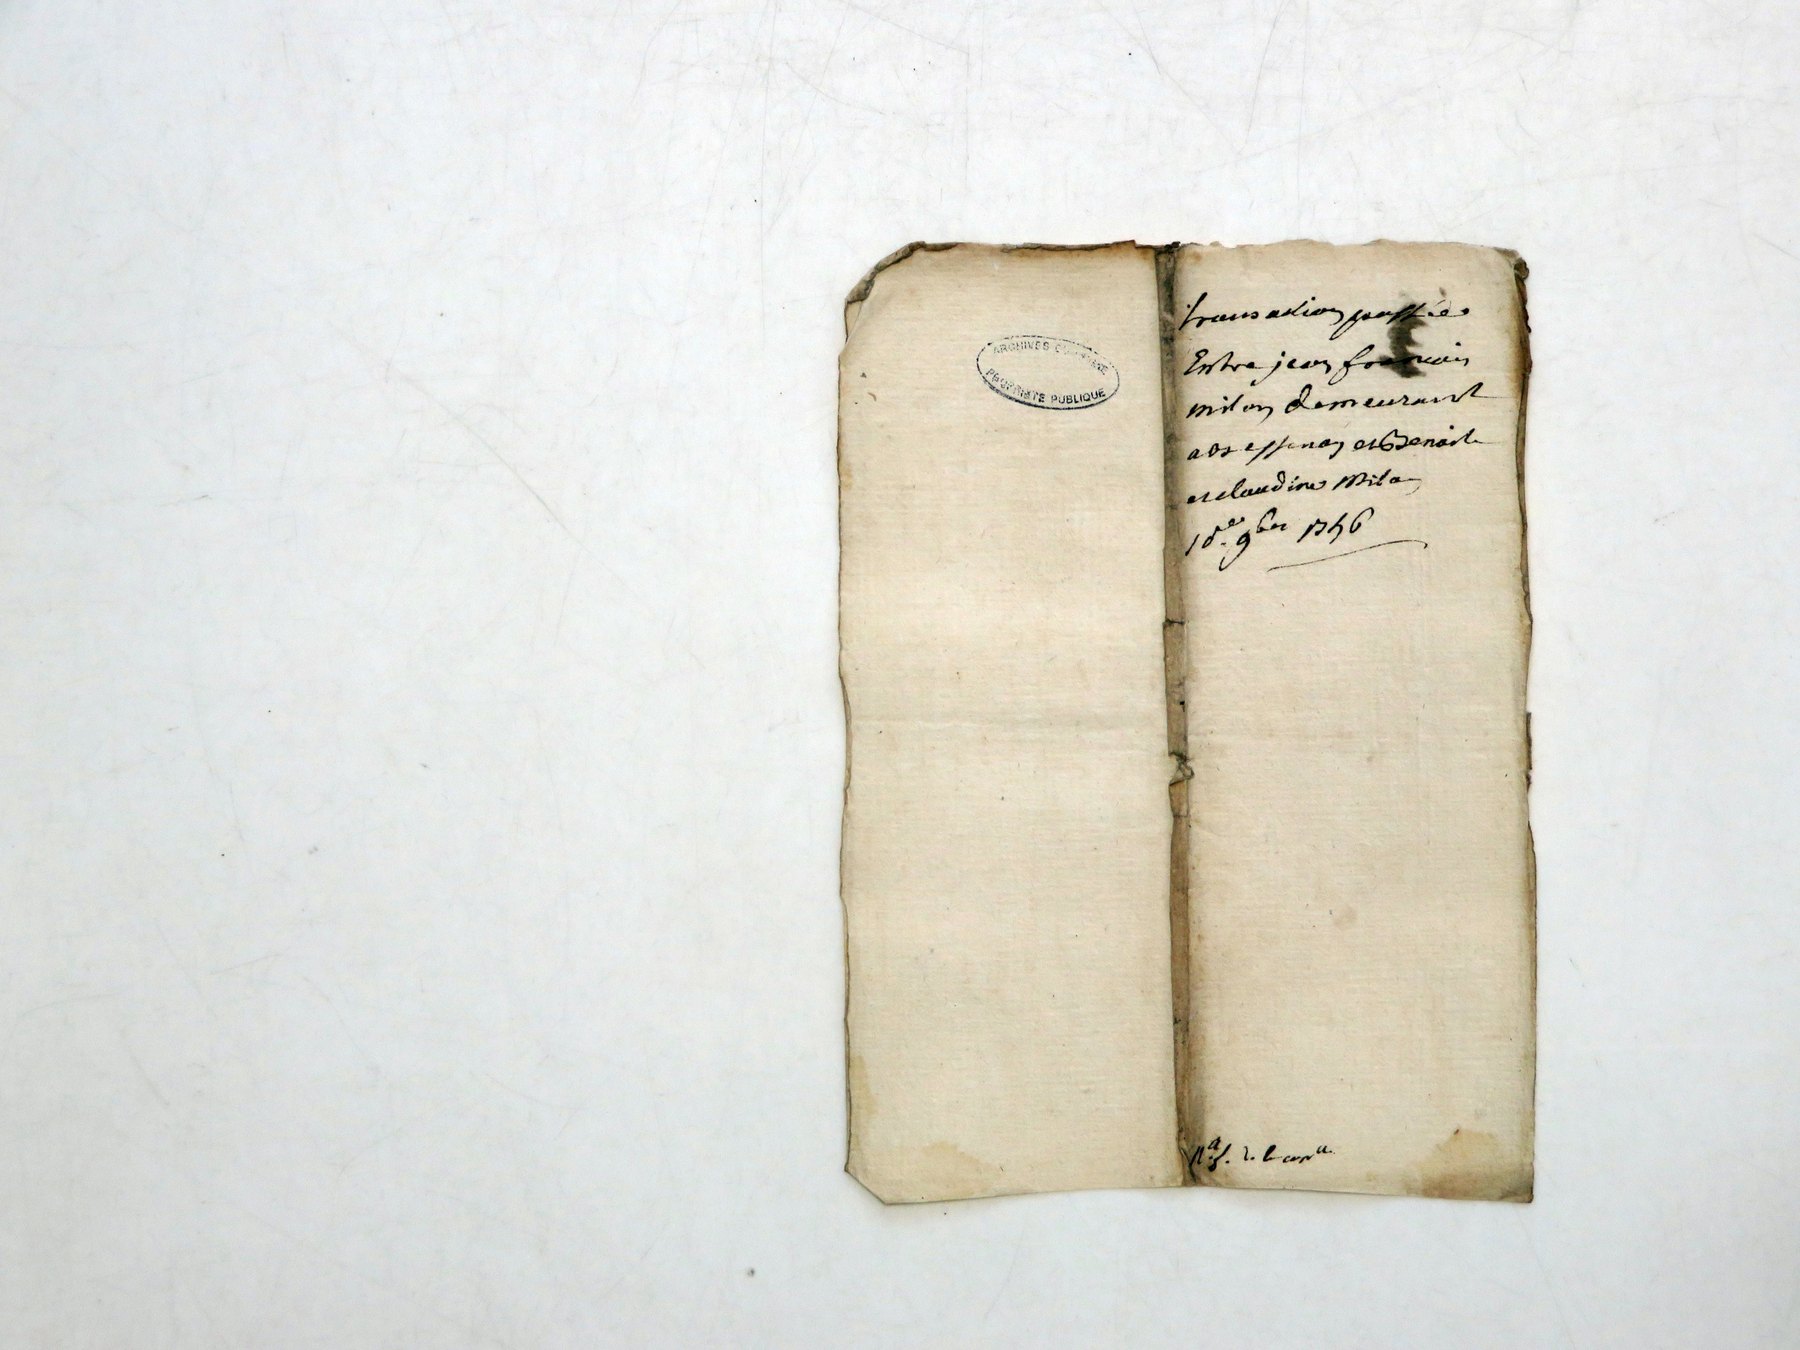 ARCHIVES
PROPRIETE PUBLIQUE
transaction passées
Entre jean francois
milon demeurant
a os et Benoist
et claudine Milon
18.e 9bre 1746